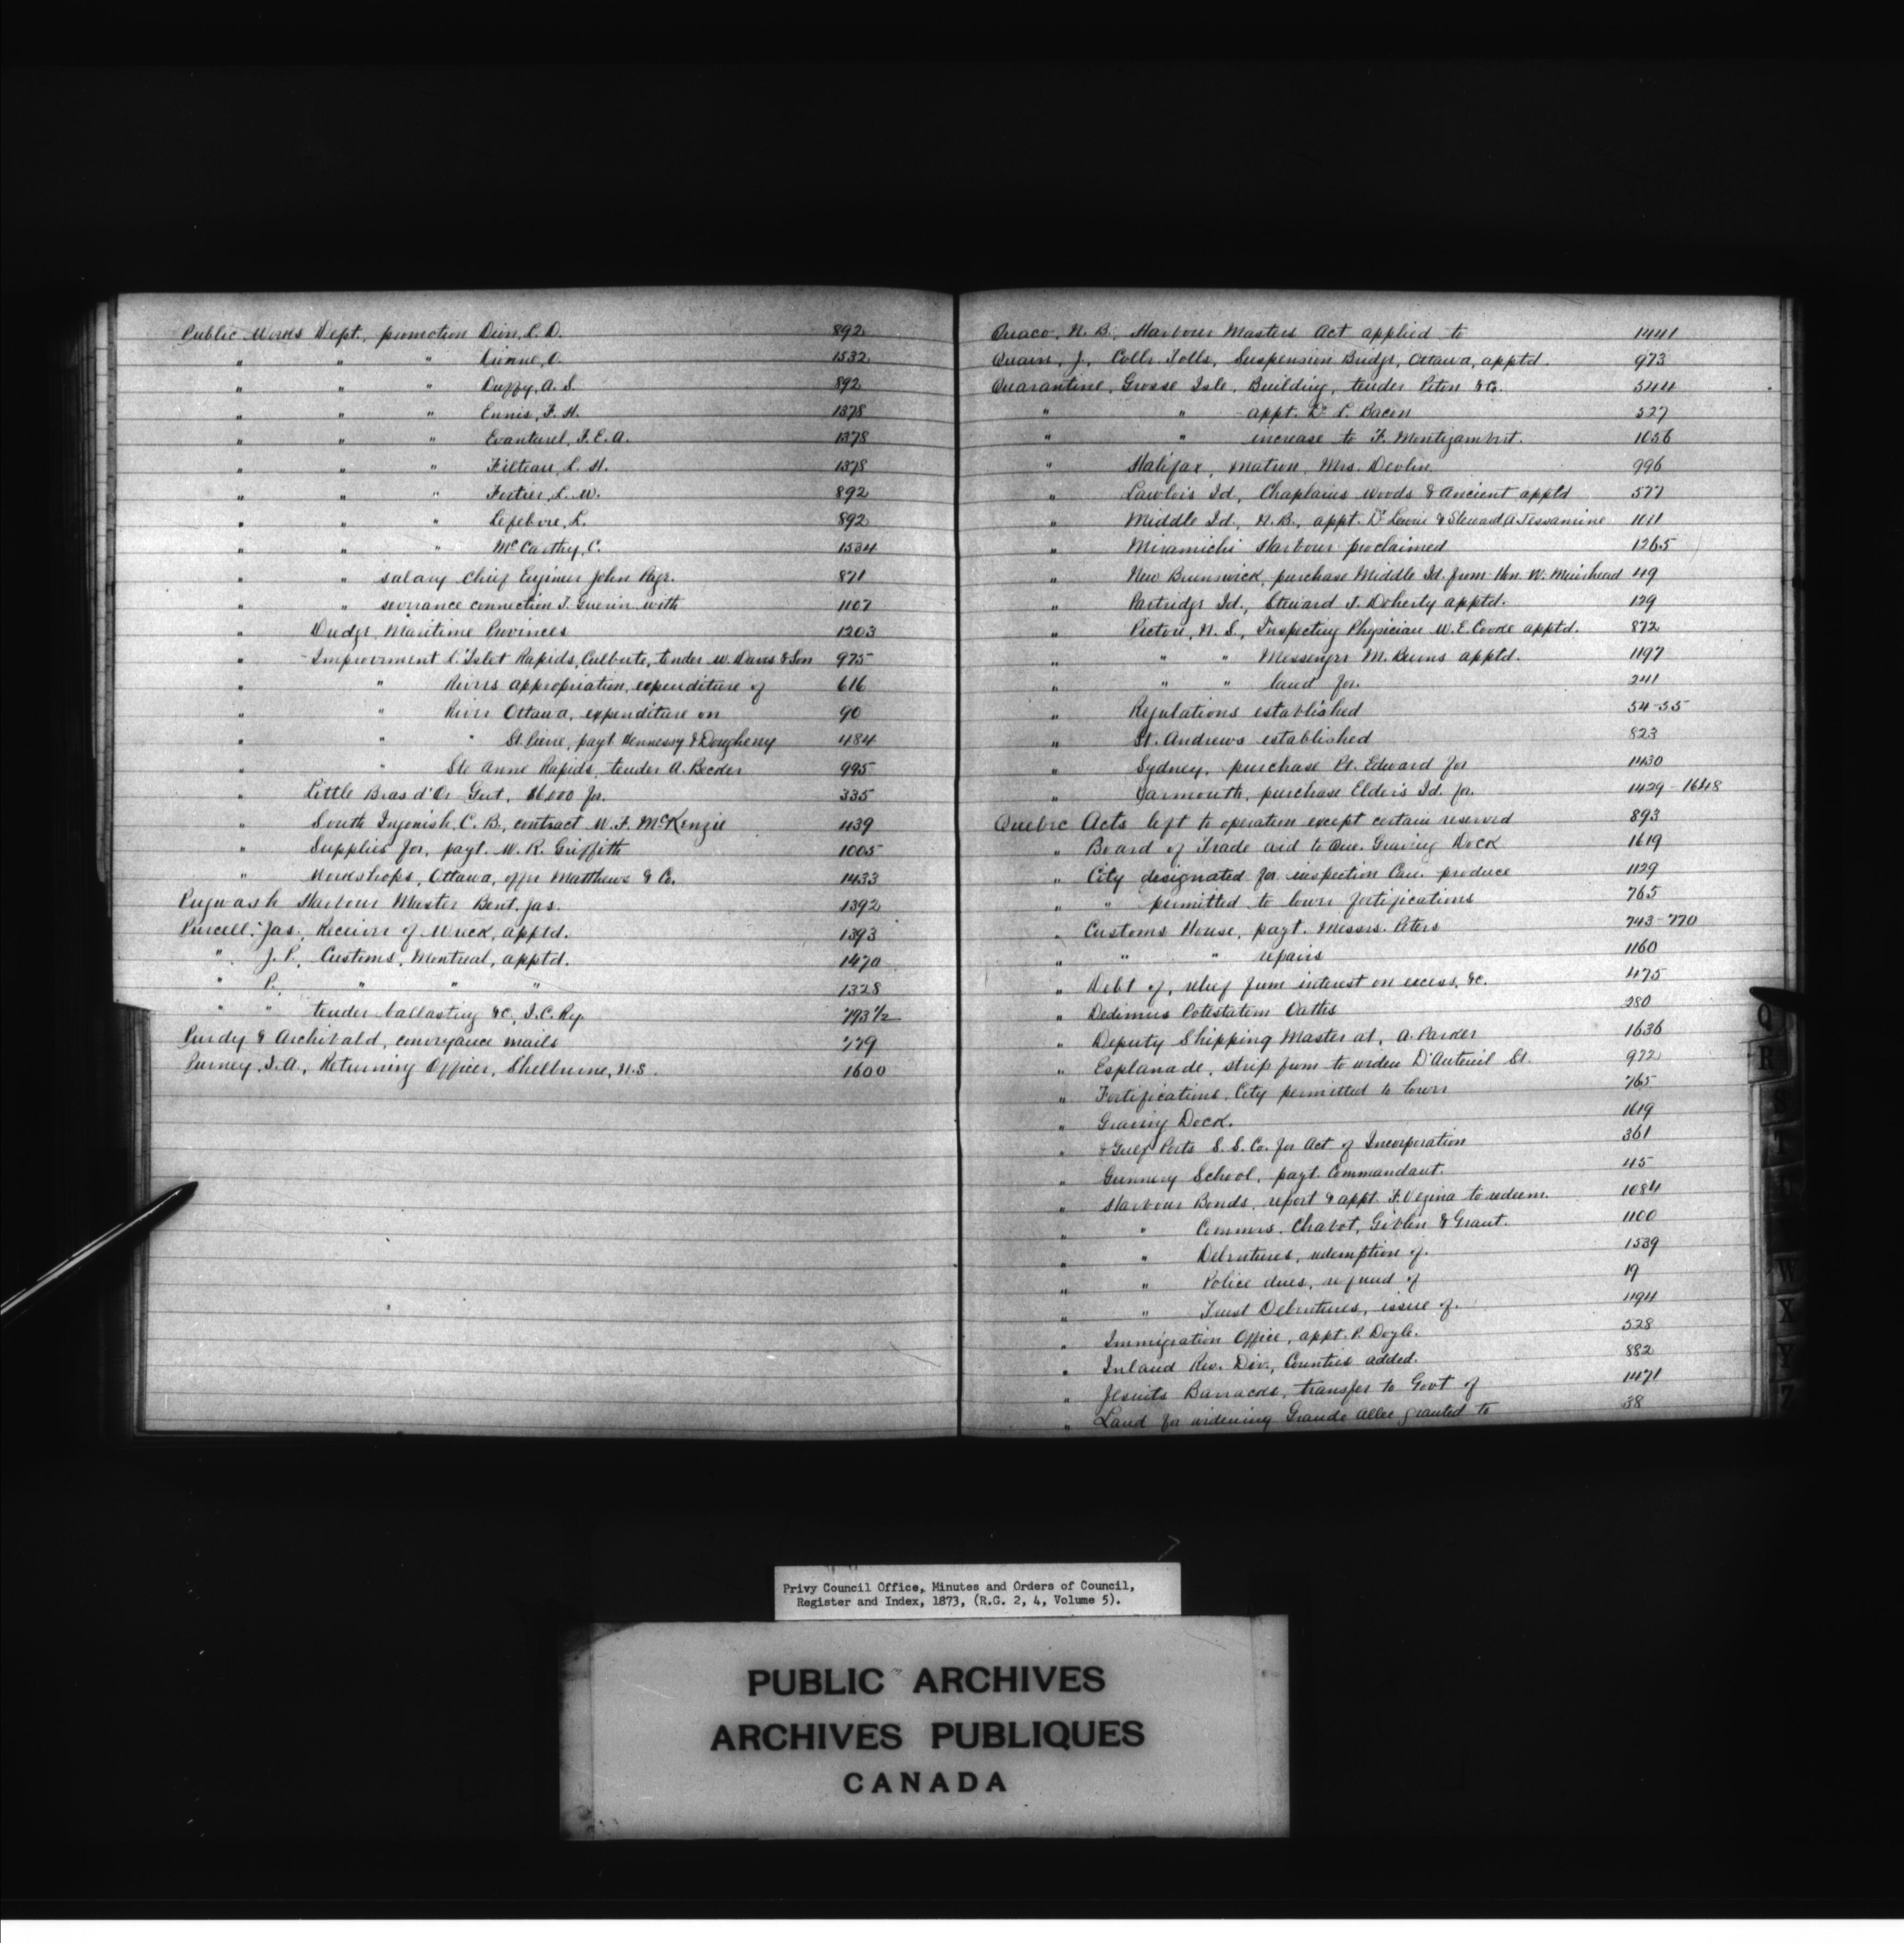 Public Works Dept., promotion Dion, L. D. 892
" " " Dionne, O. 1532
" " " Duffy, A. S. 892
" " " Ennis, F. H. 1378
" " " Evanturel, F. E. A. 1378
" " " Filteau, L. H. 1378
" " " Fortier, L. W. 892
" " " Lefebvre, L. 892
" " " McCarthy, C. 1534
" " salary Chief Engineer John Page. 871
" " severance connection T. Guerin with 1107
" Dredge, Maritime Provinces 1203
" Improvement L'Islet Rapids, Culbute, tender W. Davis & Son 975
" " Rivers appropriation, expenditure of 616
" " River Ottawa, expenditure on 90
" " " St. Pierre, payt. Hennessy & Dougheny 484
" " Ste Anne Rapids, tender A. Becker 995
" Little Bras d'Or Gut, $6,000 for. 335
" South Ingonish, C. B., contract W. F. McKenzie 439
" Supplies for, payt. W. R. Griffith 1005
" Workshops, Ottawa, offer Matthews & Co. 1433
Pugwash Harbour Master Bent, Jas. 1392
Purcell, Jas., Receiver of Wreck, apptd. 1393
" J. P., Customs, Montreal, apptd. 1470
" P. " " " 1328
" " tender ballasting &c, I. C. Ry. 793 1/2
Purdy & Archibald, conveyance mails 779
Purney, J. A., Returning Officer, Shelburne, N.S. 1600
Quaco, N. B., Harbour Masters Act applied to 1441
Quain, J., Collr Tolls, Suspension Bridge, Ottawa, apptd. 973
Quarantine, Grosse Isle, Building, tender Piton & Co. 544
" " appt. Dr L. Bacon 527
" " increase to F. Montizambert. 1056
" Halifax, Matron, Mrs. Devlin. 996
" Lawlor's Id., Chaplains Woods & Ancient apptd 577
" Middle Id., N. B., appt. Dr Lewin & Steward A. Jessamine 1011
" Miramichi Harbour proclaimed 1265
" New Brunswick, purchase Middle Id. from Hon. W. Muirhead 119
" Partridge Id., Steward J. Doherty apptd. 129
" Pictou, N. S., Inspecting Physician W. E. Cooke apptd. 872
" " " Messenger M. Burns apptd. 1197
" " " land for. 241
" Regulations established 54-55
" St. Andrews established 823
" Sydney, purchase Pt. Edward for 1430
" Yarmouth, purchase Elder's Id. for. 1429-1648
Quebec Acts left to operation except certain reserved 893
" Board of Trade aid to Que. Graving Dock 1619
" City designated for inspection Can. produce 1129
" " permitted to lower fortifications 765
" Customs House, payt. Messrs. Peters 743-770
" " " repairs 1160
" Debt of, relief from interest on excess, &c. 475
" Dedimus Potestatem Oaths 280
" Deputy Shipping Master at, A. Parker 1636
" Esplanade, strip from to widen D'Auteuil St. 972
" Fortifications, City permitted to lower 765
" Graving Dock. 1619
" & Gulf Ports S. S. Co. for Act of Incorporation 361
" Gunnery School, payt. Commandant. 45
" Harbour Bonds, report & appt. F. Vezina to redeem. 1084
" " Commrs. Chabot, Giblin & Grant. 1100
" " Debentures, redemption of. 1539
" " Police dues, refund of 19
" " Trust Debentures, issue of. 1194
" Immigration Office, appt. P. Doyle. 528
" Inland Rev. Div., Counties added. 882
" Jesuits Barracks, transfer to Govt of 1471
" Land for widening Grande Allee granted to 38
Q
R
S
T
W
X
Y
Z
Privy Council Office, Minutes and Orders of Council,
Register and Index, 1873, (R.G. 2, 4, Volume 5).
PUBLIC ARCHIVES
ARCHIVES PUBLIQUES
CANADA